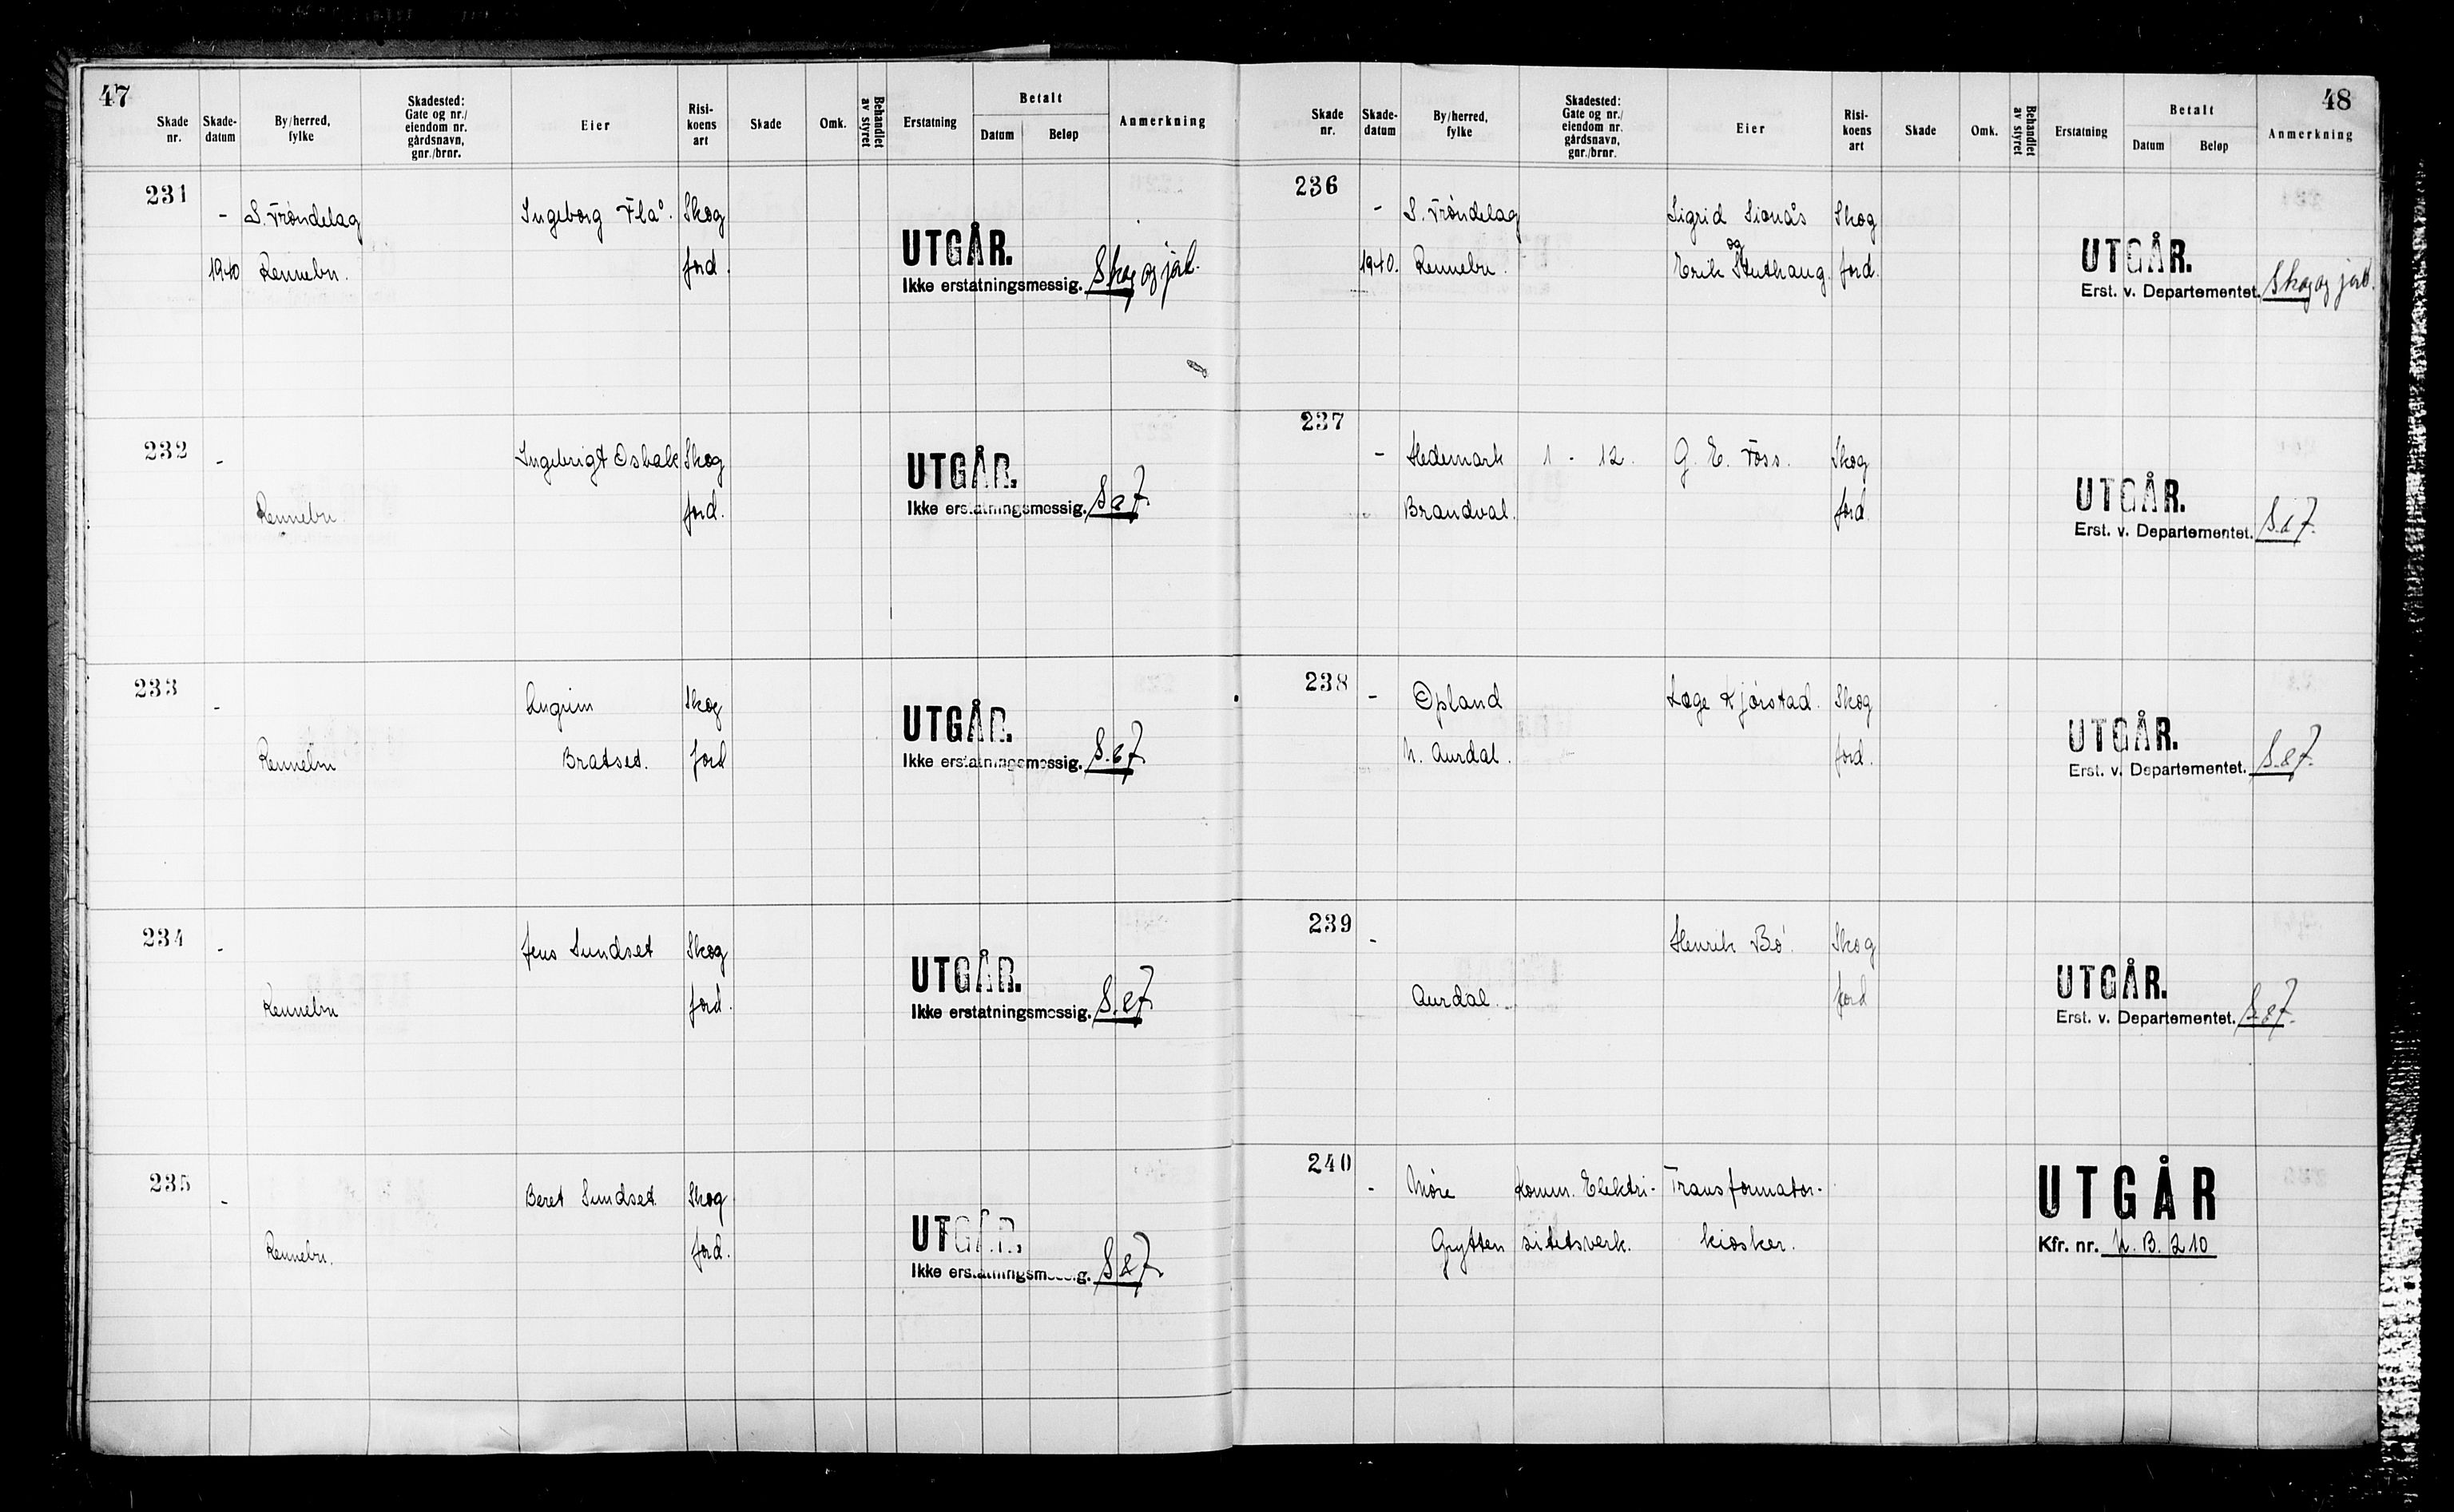 47
Skade nr. Skade-datum By/herred, fylke Skadested: Gate og nr./ eiendom nr. gårdsnavn, gnr./brnr. Eier Risi-koens art Skade Omk. Behandlet av styret Erstatning Betalt Datum Beløp Anmerkning
231 - S. Trøndelag Ingeborg Flå. Skog
1940 Rennebu. Jord.
UTGÅR.
Ikke erstatningsmessig. Skog og jord.
232 - Ingebrigt Osbak Skog
Rennebu. Jord.
UTGÅR.
Ikke erstatningsmessig. S.o.J.
233 - Skog
Rennebu Bratset. Jord
UTGÅR.
Ikke erstatningsmessig. S.o.J.
234 - Jens Sundset Skog
Rennebu Jord.
UTGÅR.
Ikke erstatningsmessig. S.o.J.
235 - Beret Sundset. Skog
Rennebu. Jord.
UTGÅR.
Ikke erstatningsmessig. S.o.J.
48
Skade nr. Skade-datum By/herred, fylke Skadested: Gate og nr./ eiendom nr. gårdsnavn, gnr./brnr. Eier Risi-koens art Skade Omk. Behandlet av styret Erstatning Betalt Datum Beløp Anmerkning
236 - S. Trøndelag Sigrid Skog
og
1940. Rennebu. Erik Stuthaug. Jord.
UTGÅR.
Erst. v. Departementet. Skog og jord.
237 - Hedemark 1 - 12. G. E. Foss. Skog
Brandval. Jord.
UTGÅR.
Erst. v. Departementet. S.o.J.
238 - Opland Kjørstad. Skog
N. Aurdal. Jord.
UTGÅR.
Erst. v. Departementet. S.o.J.
239 - Henrik Bø. Skog
Aurdal. Jord
UTGÅR.
Erst. v. Departementet. S.o.J.
240 - Møre Komm. Elektri- Transformator-
Grytten sitetsverk. kiosker.
UTGÅR
Kfr. nr. N. B. 210